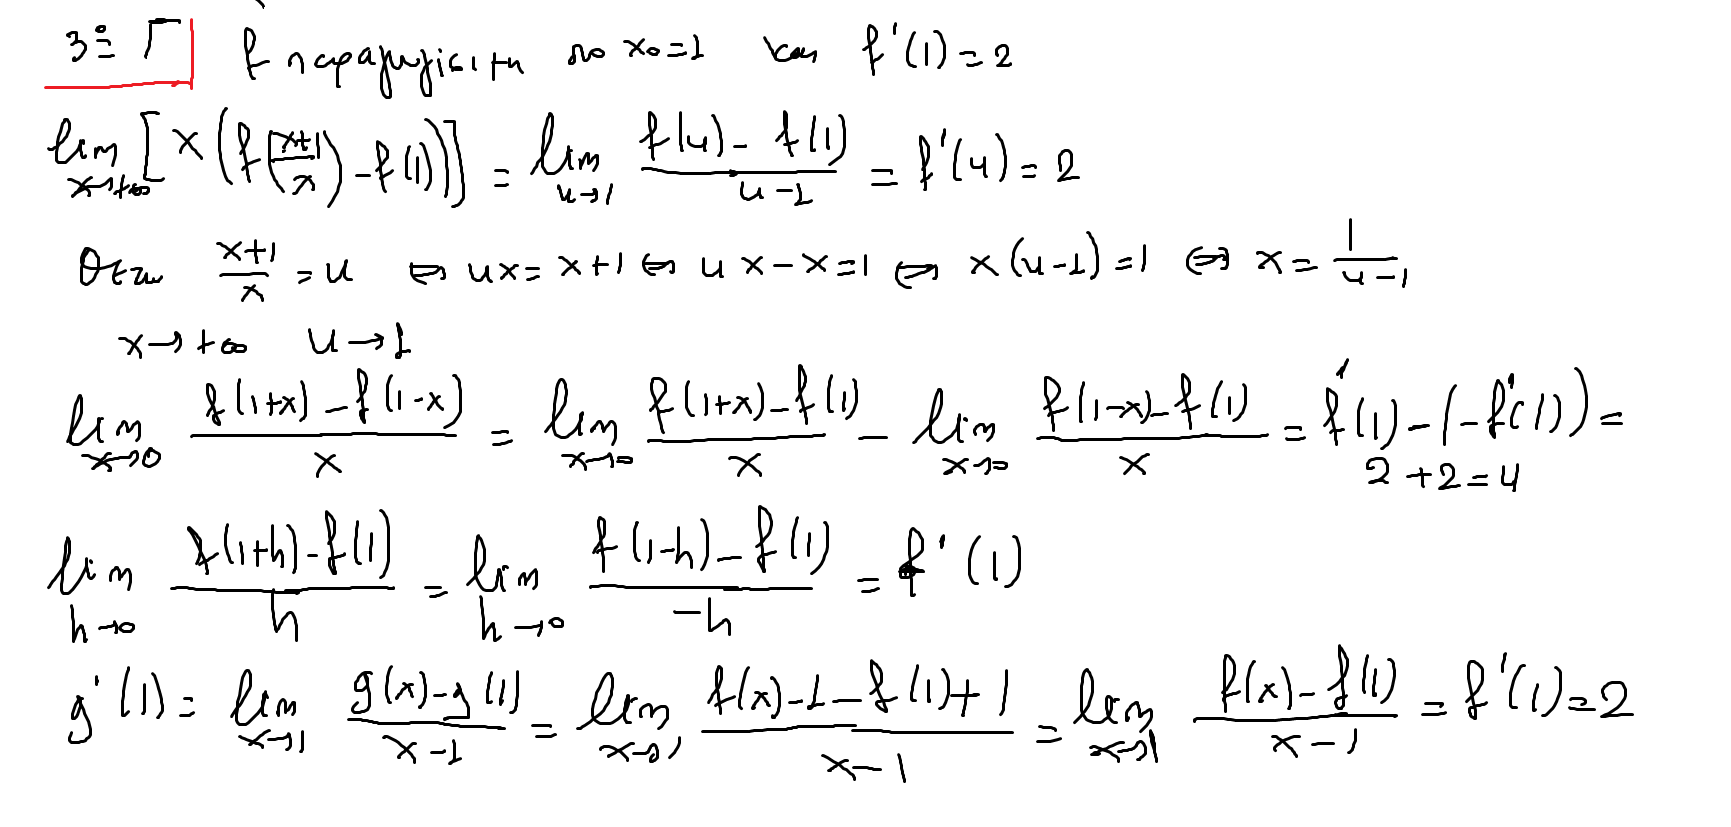 3º Γ f παραγωγίσιμη στο x₀=1 και f'(1)=2
lim x→+∞ [x(f(x+1/x)-f(1))] = lim u→1 f(u)-f(1)/u-1 = f'(u)=2
Θέτω x+1/x = u ⇔ ux = x+1 ⇔ ux-x=1 ⇔ x(u-1)=1 ⇔ x = 1/u-1
x→+∞ u→1
lim x→0 f(1+x)-f(1-x)/x = lim x→0 f(1+x)-f(1)/x - lim x→0 f(1-x)-f(1)/x = f'(1)-(-f'(1))=
2+2=4
lim h→0 f(1+h)-f(1)/h = lim h→0 f(1-h)-f(1)/-h = f'(1)
g'(1) = lim x→1 g(x)-g(1)/x-1 = lim x→1 f(x)-1-f(1)+1/x-1 = lim x→1 f(x)-f(1)/x-1 = f'(1)=2